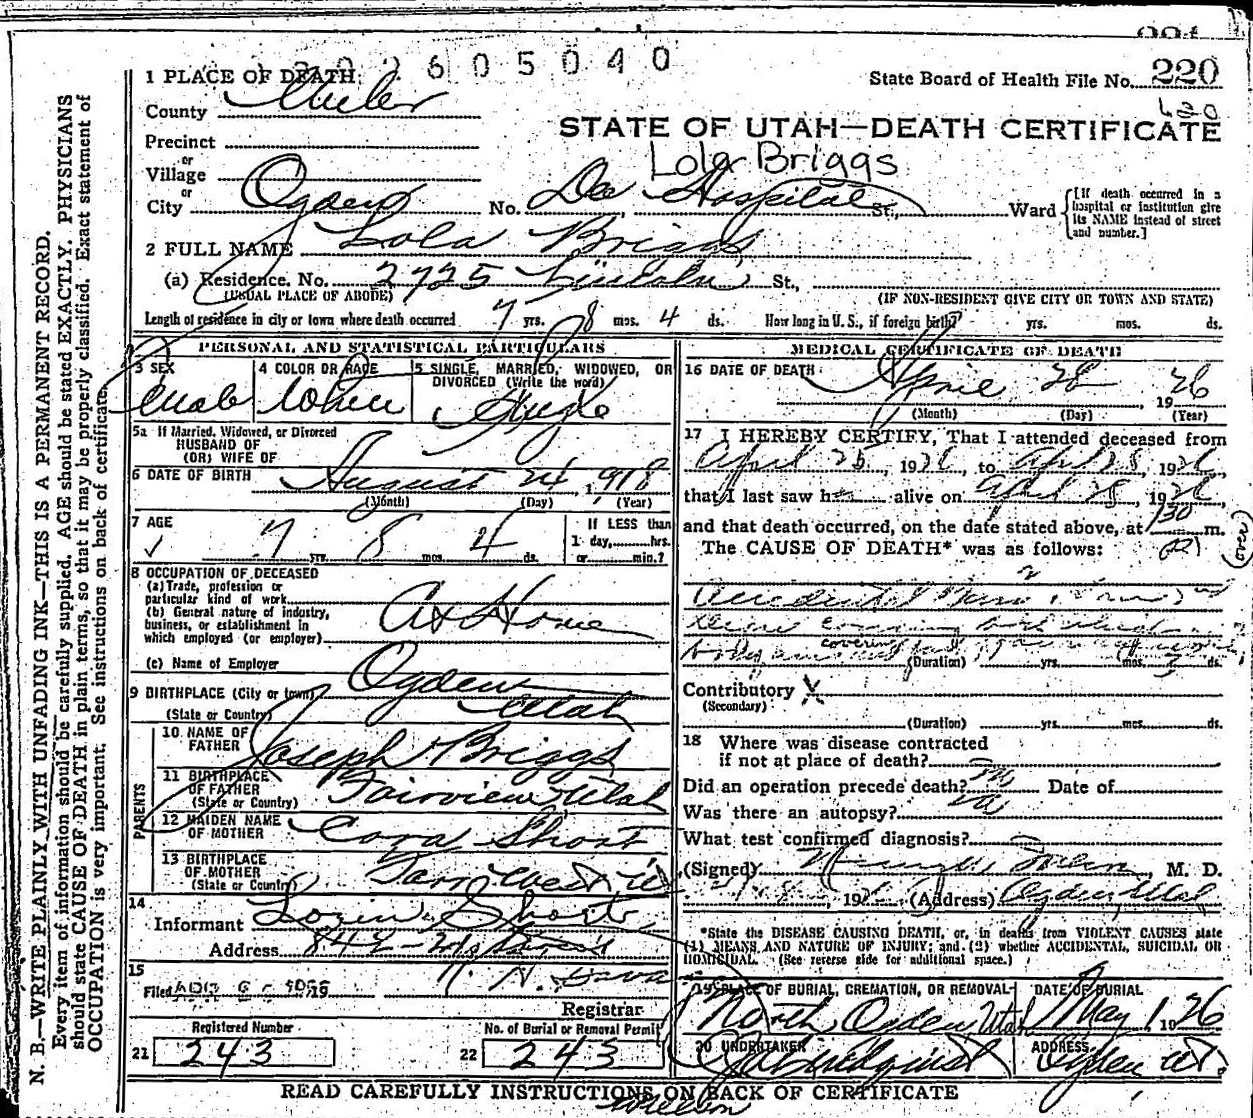 2605040
1 PLACE OF DEATH
State Board of Health File No. 220
County Weber
STATE OF UTAH—DEATH CERTIFICATE
Precinct
Lola Briggs
or
Village
or
City Ogden No. Dee Hospital St., Ward
[If death occurred in a hospital or institution give its NAME instead of street and number.]
2 FULL NAME Lola Briggs
(a) Residence. No. 2725 Lincoln St.,
(USUAL PLACE OF ABODE) (IF NON-RESIDENT GIVE CITY OR TOWN AND STATE)
Length of residence in city or town where death occurred 7 yrs. 8 mos. 4 ds. How long in U. S., if foreign birth? yrs. mos. ds.
PERSONAL AND STATISTICAL PARTICULARS
3 SEX
4 COLOR OR RACE White
5 SINGLE, MARRIED, WIDOWED, OR DIVORCED (Write the word) Single
5a If Married, Widowed, or Divorced
HUSBAND OF
(OR) WIFE OF
6 DATE OF BIRTH August 24, 1918
(Month) (Day) (Year)
7 AGE
7 yrs. 8 mos. 4 ds.
If LESS than
1 day,......hrs.
or......min.?
8 OCCUPATION OF DECEASED
(a) Trade, profession or
particular kind of work
(b) General nature of industry,
business, or establishment in
which employed (or employer) At Home
(c) Name of Employer
9 BIRTHPLACE (City or town) Ogden
(State or Country) Utah
PARENTS
10 NAME OF
FATHER Joseph Briggs
11 BIRTHPLACE
OF FATHER
(State or Country) Fairview Utah
12 MAIDEN NAME
OF MOTHER Cora Short
13 BIRTHPLACE
OF MOTHER
(State or Country)
14
Informant Short
Address
15
Filed
Registrar
Registered Number
21 243
No. of Burial or Removal Permit
22 243
MEDICAL CERTIFICATE OF DEATH
16 DATE OF DEATH April 28 1926
(Month) (Day) (Year)
17 I HEREBY CERTIFY, That I attended deceased from
April 25, 1926, to April 28, 1926
that I last saw h alive on April 28, 1926
and that death occurred, on the date stated above, at 130 m.
The CAUSE OF DEATH* was as follows:
(over)
Accidental
covering
body
(Duration) yrs. mos. 3 ds.
Contributory X
(Secondary)
(Duration) yrs. mos. ds.
18 Where was disease contracted
if not at place of death?
Did an operation precede death? no Date of
Was there an autopsy? no
What test confirmed diagnosis?
(Signed) , M. D.
(Address) Ogden, Utah
*State the DISEASE CAUSING DEATH, or, in deaths from VIOLENT CAUSES state
(1) MEANS AND NATURE OF INJURY; and (2) whether ACCIDENTAL, SUICIDAL OR
HOMICIDAL. (See reverse side for additional space.)
19 PLACE OF BURIAL, CREMATION, OR REMOVAL
North Ogden, Utah
DATE OF BURIAL
May 1, 1926
20 UNDERTAKER
Lindquist
ADDRESS
Ogden Ut.
READ CAREFULLY INSTRUCTIONS ON BACK OF CERTIFICATE
N. B.—WRITE PLAINLY WITH UNFADING INK—THIS IS A PERMANENT RECORD.
Every item of information should be carefully supplied. AGE should be stated EXACTLY. PHYSICIANS
should state CAUSE OF DEATH in plain terms, so that it may be properly classified. Exact statement of
OCCUPATION is very important. See instructions on back of certificate.